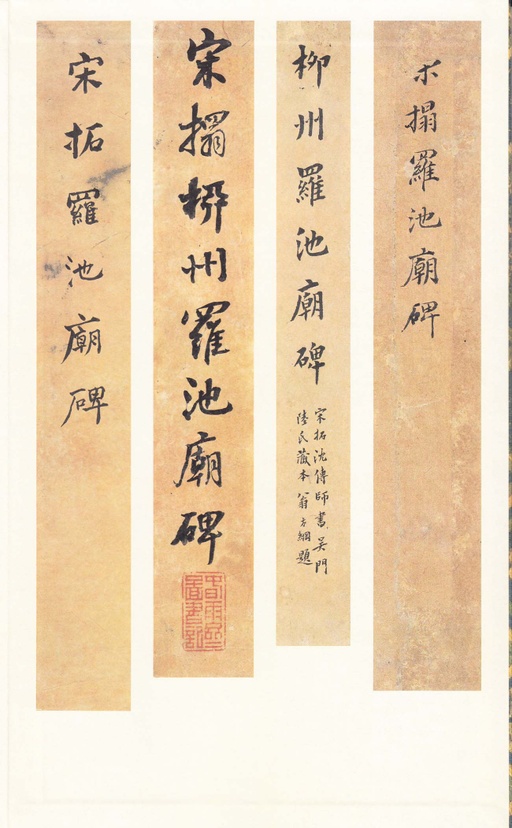 搨羅池廟碑
柳州羅池廟碑
宋拓沈傳師書吳門
陸氏藏本翁方綱題
宋搨桺州羅池廟碑
宋拓羅池廟碑